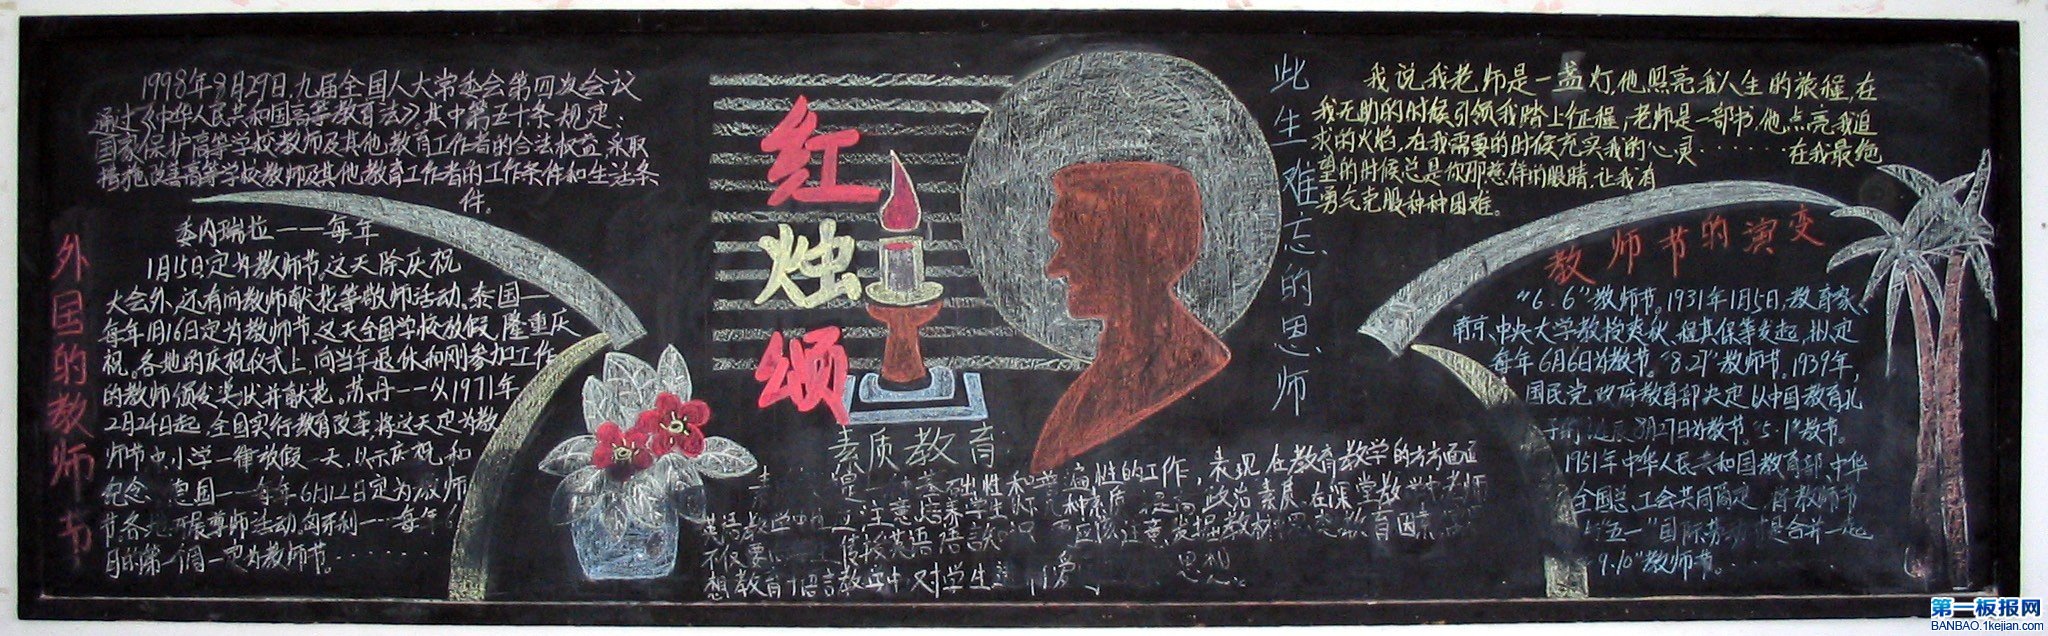 1998年8月29日,九届全国人大常委会第四次会议
通过《中华人民共和国高等教育法》其中第五十条规定:
国家保护高等学校教师及其他教育工作者的合法权益,采取
措施改善高等学校教师及其他教育工作者的工作条件和生活条
件。
外国的教师节
委内瑞拉——每年
1月15日定为教师节,这天除庆祝
大会外,还有向教师献花等敬师活动。泰国—
每年1月16日定为教师节。这天全国学校放假,隆重庆
祝。各地的庆祝仪式上,向当年退休和刚参加工作
的教师颁发奖状并献花。苏丹——从1971年
2月24日起,全国实行教育改革,将这天定为教
师节中、小学一律放假一天,以示庆祝和
纪念 德国——每年6月12日定为教师
节,各地开展尊师活动。匈牙利——每年6
月的第一个周一定为教师节。······
红烛颂
素质教育
是 基础性和普遍性的工作,表现在教育教学的方方面面
英语教学中 注意培养学生 种素质 提高政治素质。在课堂教学中老师
不仅要 传授英语语言知识 应该注意发掘教材 教育因素
想教育 语言教学中 对学生进行爱 思想
此生难忘的恩师
我说我老师是一盏灯,他照亮我人生的旅程,在
我无助的时候引领我踏上征程;老师是一部书,他点亮我追
求的火焰,在我需要的时候充实我的心灵······在我最绝
望的时候总是你那慈祥的眼睛,让我有
勇气克服种种困难。
教师节的演变
“6.6”教师节。1931年1月5日,教育家、
南京、中央大学教授爽秋、程其保等发起,拟定
每年6月6日为教节。“8.27”教师节。1939年,
国民党政府教育部决定以中国教育孔
子的诞辰8月27日为教节。“5.1”教节。
1951年中华人民共和国教育部、中华
全国总工会共同商定,将教师节
与“五一”国际劳动节合并一起
“9.10”教师节。······
第一板报网
BANBAO.1kejian.com